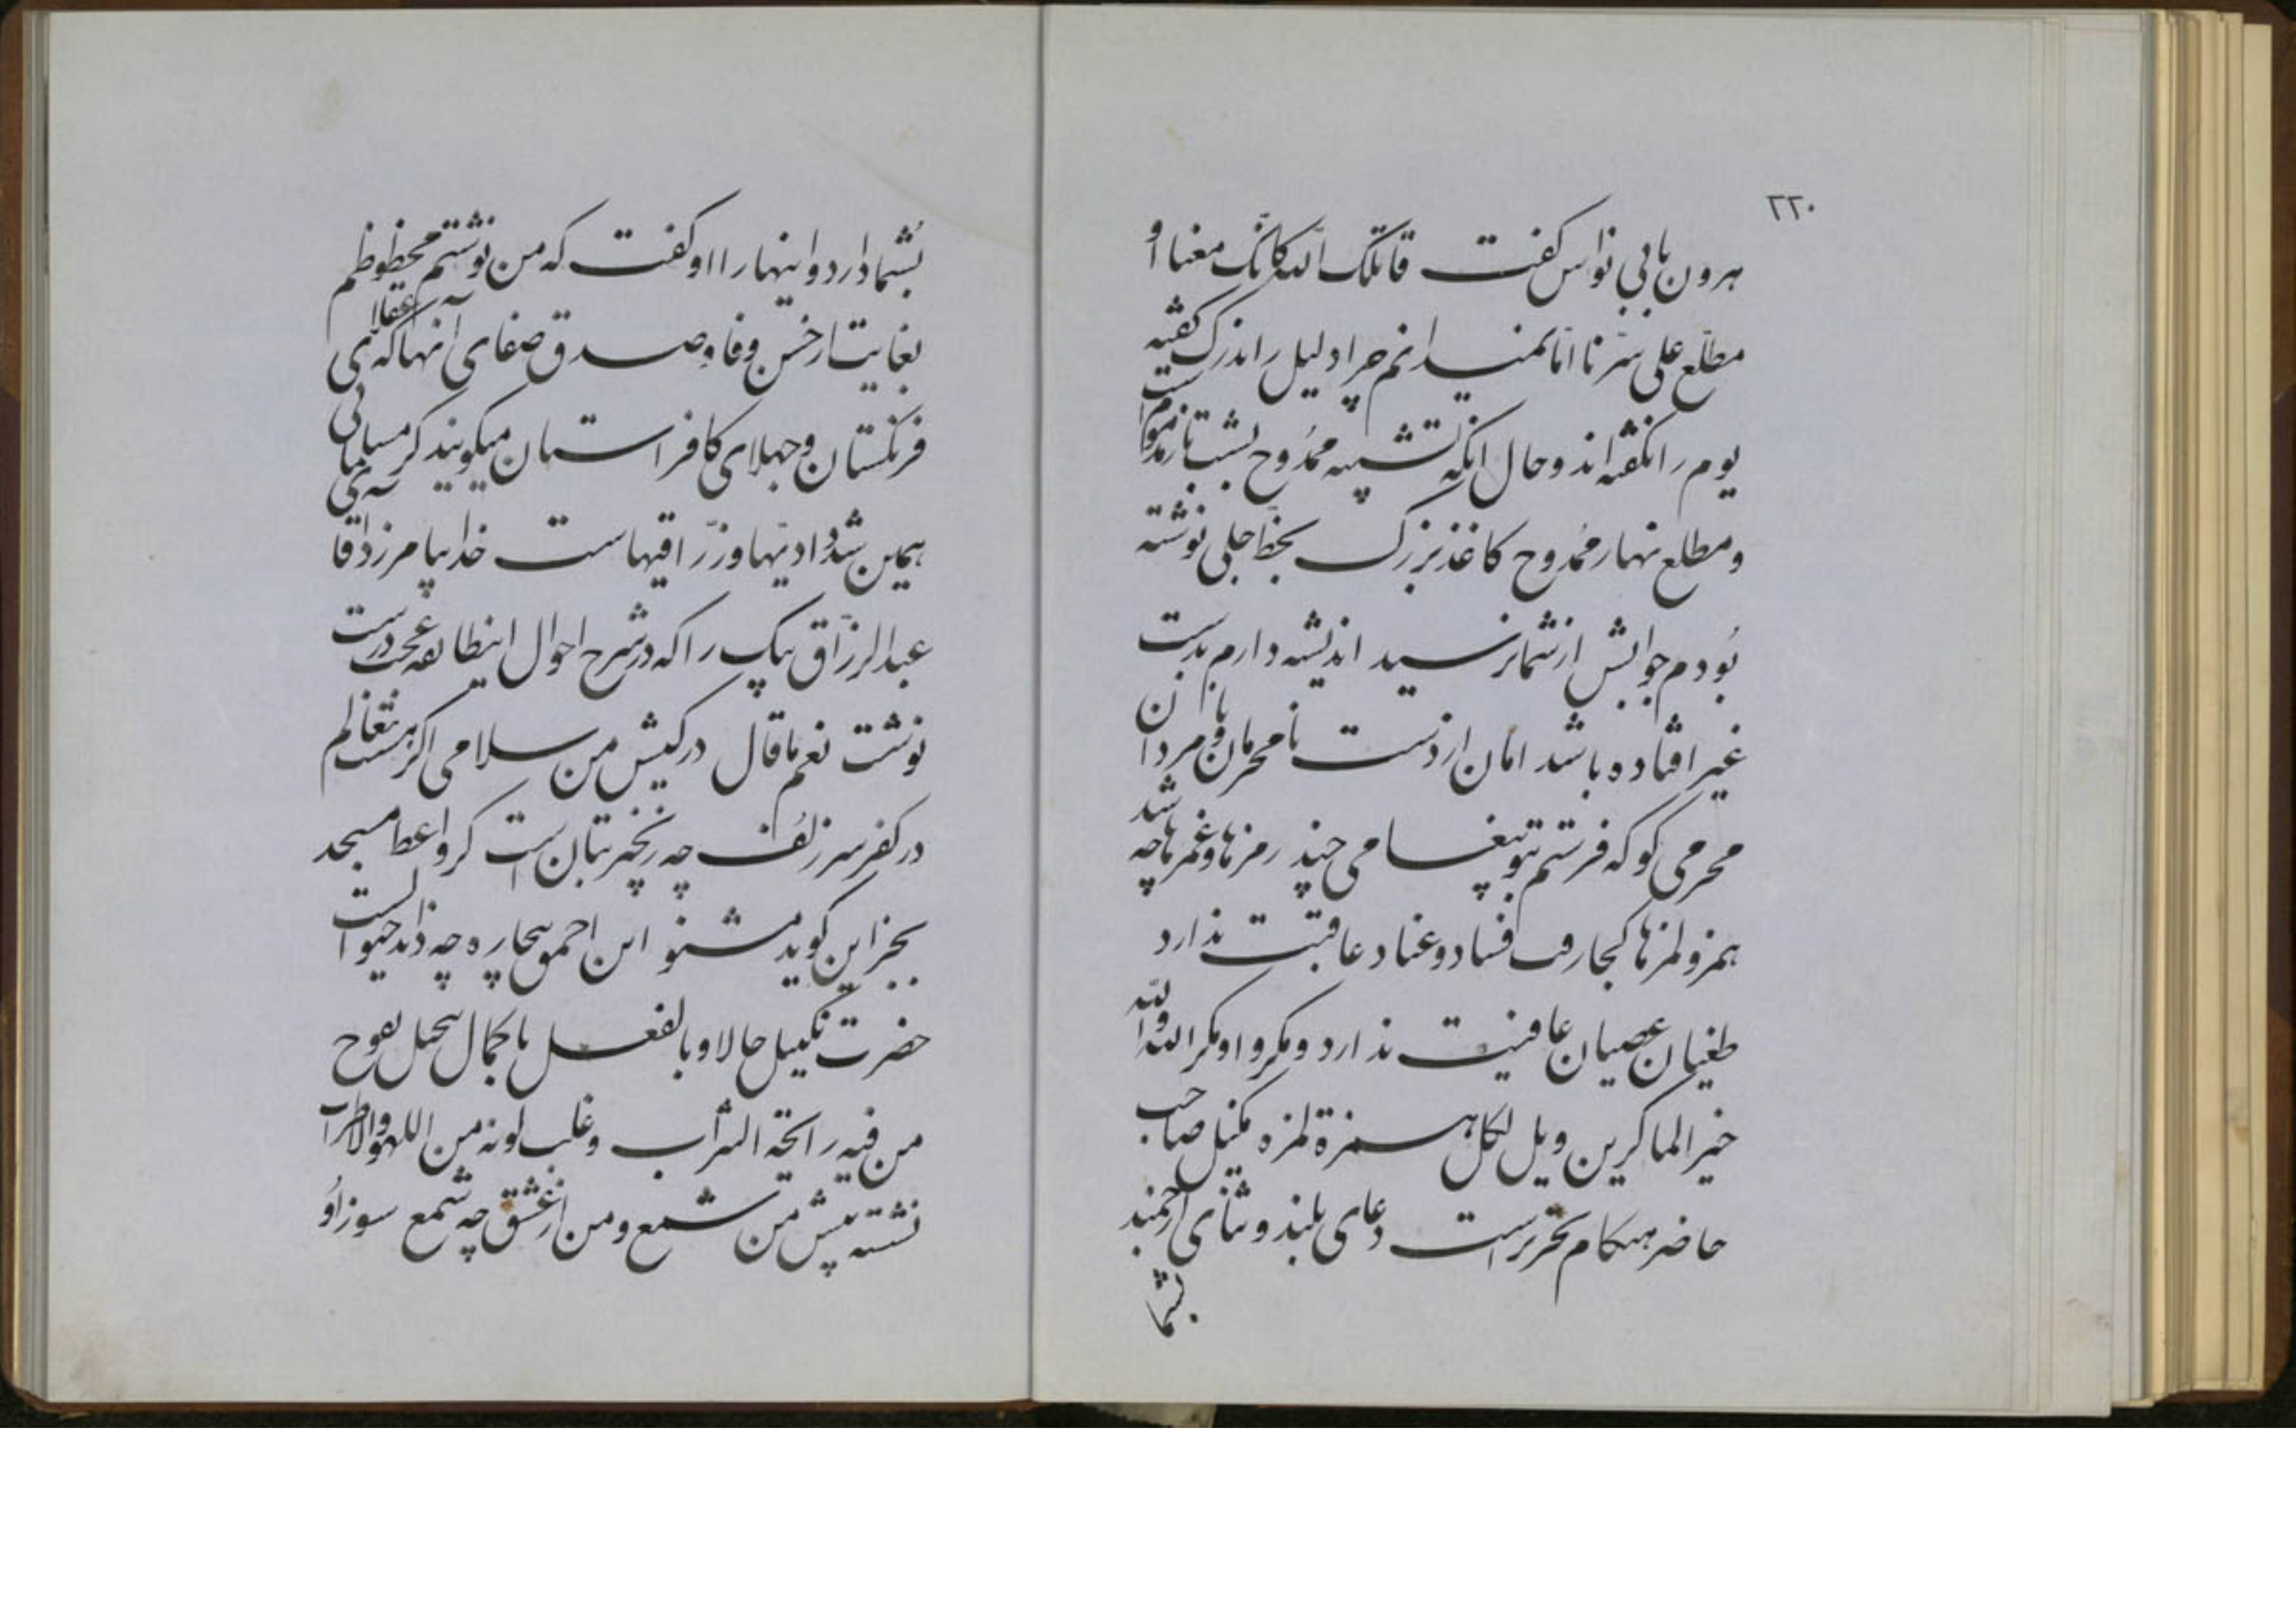 ۲۲۰
هرون بابی نواس کفت قاتلک الله کانک معنا او
مطلع علی سرنا اما نمیدانم چرا دلیل را اندرک کفته
یوم را نکفته اند و حال انکه تشبیه ممدوح بشب تار مذموم است
و مطلع نهار ممدوح کاغذ بزرک بخط جلی نوشته
بودم جوابش از شما نرسید اندیشه دارم بدست
غیر افتاده باشد امان از دست نامحرمان و مردان
محرمی کو که فرستم بتو پیغامی چند رمزها و غمزها چه شد
همز و لمزها کجا رفت فساد و عناد عاقبت ندارد
طغیان عصیان عافیت ندارد و مکروا و مکر الله والله
خیر الماکرین ویل لکل همزة لمزه مکیل صاحب
حاضر هنکام تحریر است دعای بلند و ثنای ارجمند
بشما
بشما دارد و اینها را او کفت که من نوشتم محظوظم
بغایت از حسن وفا و صدق صفای آنها که عقلای
فرنکستان و جهلای کافرستان میکویند کر مسلمانی
همین شدادیها و زراقیهاست خدا بیامرزد آقا
عبدالرزاق بیک را که در شرح احوال اینطایفه عجب درست
نوشت نعم ما قال در کیش من سلامی اکر هست بعالم
در کفر سر زلف چه زنجیر بتان است کر واعظ مسجد
بجز این کوید مشنو این احمق بیچاره چه داند حیوانست
حضرت مکیل حالا و بالفعل با کمال تحیل یفوح
من فیه رایحة الشراب و غلب لونه من اللهو والاطراب
نشسته پیش من شمع و من از عشق چه شمع سوز او